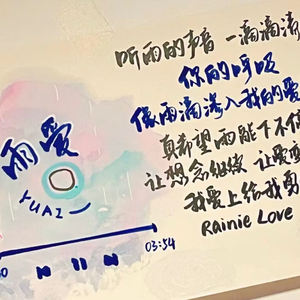 听雨的声音 一滴滴清
你的呼吸
像雨滴渗入我的爱
真希望雨能下不停
让想念继续 让爱变
我爱上给我勇
Rainie Love
雨爱
YUAI
03:54